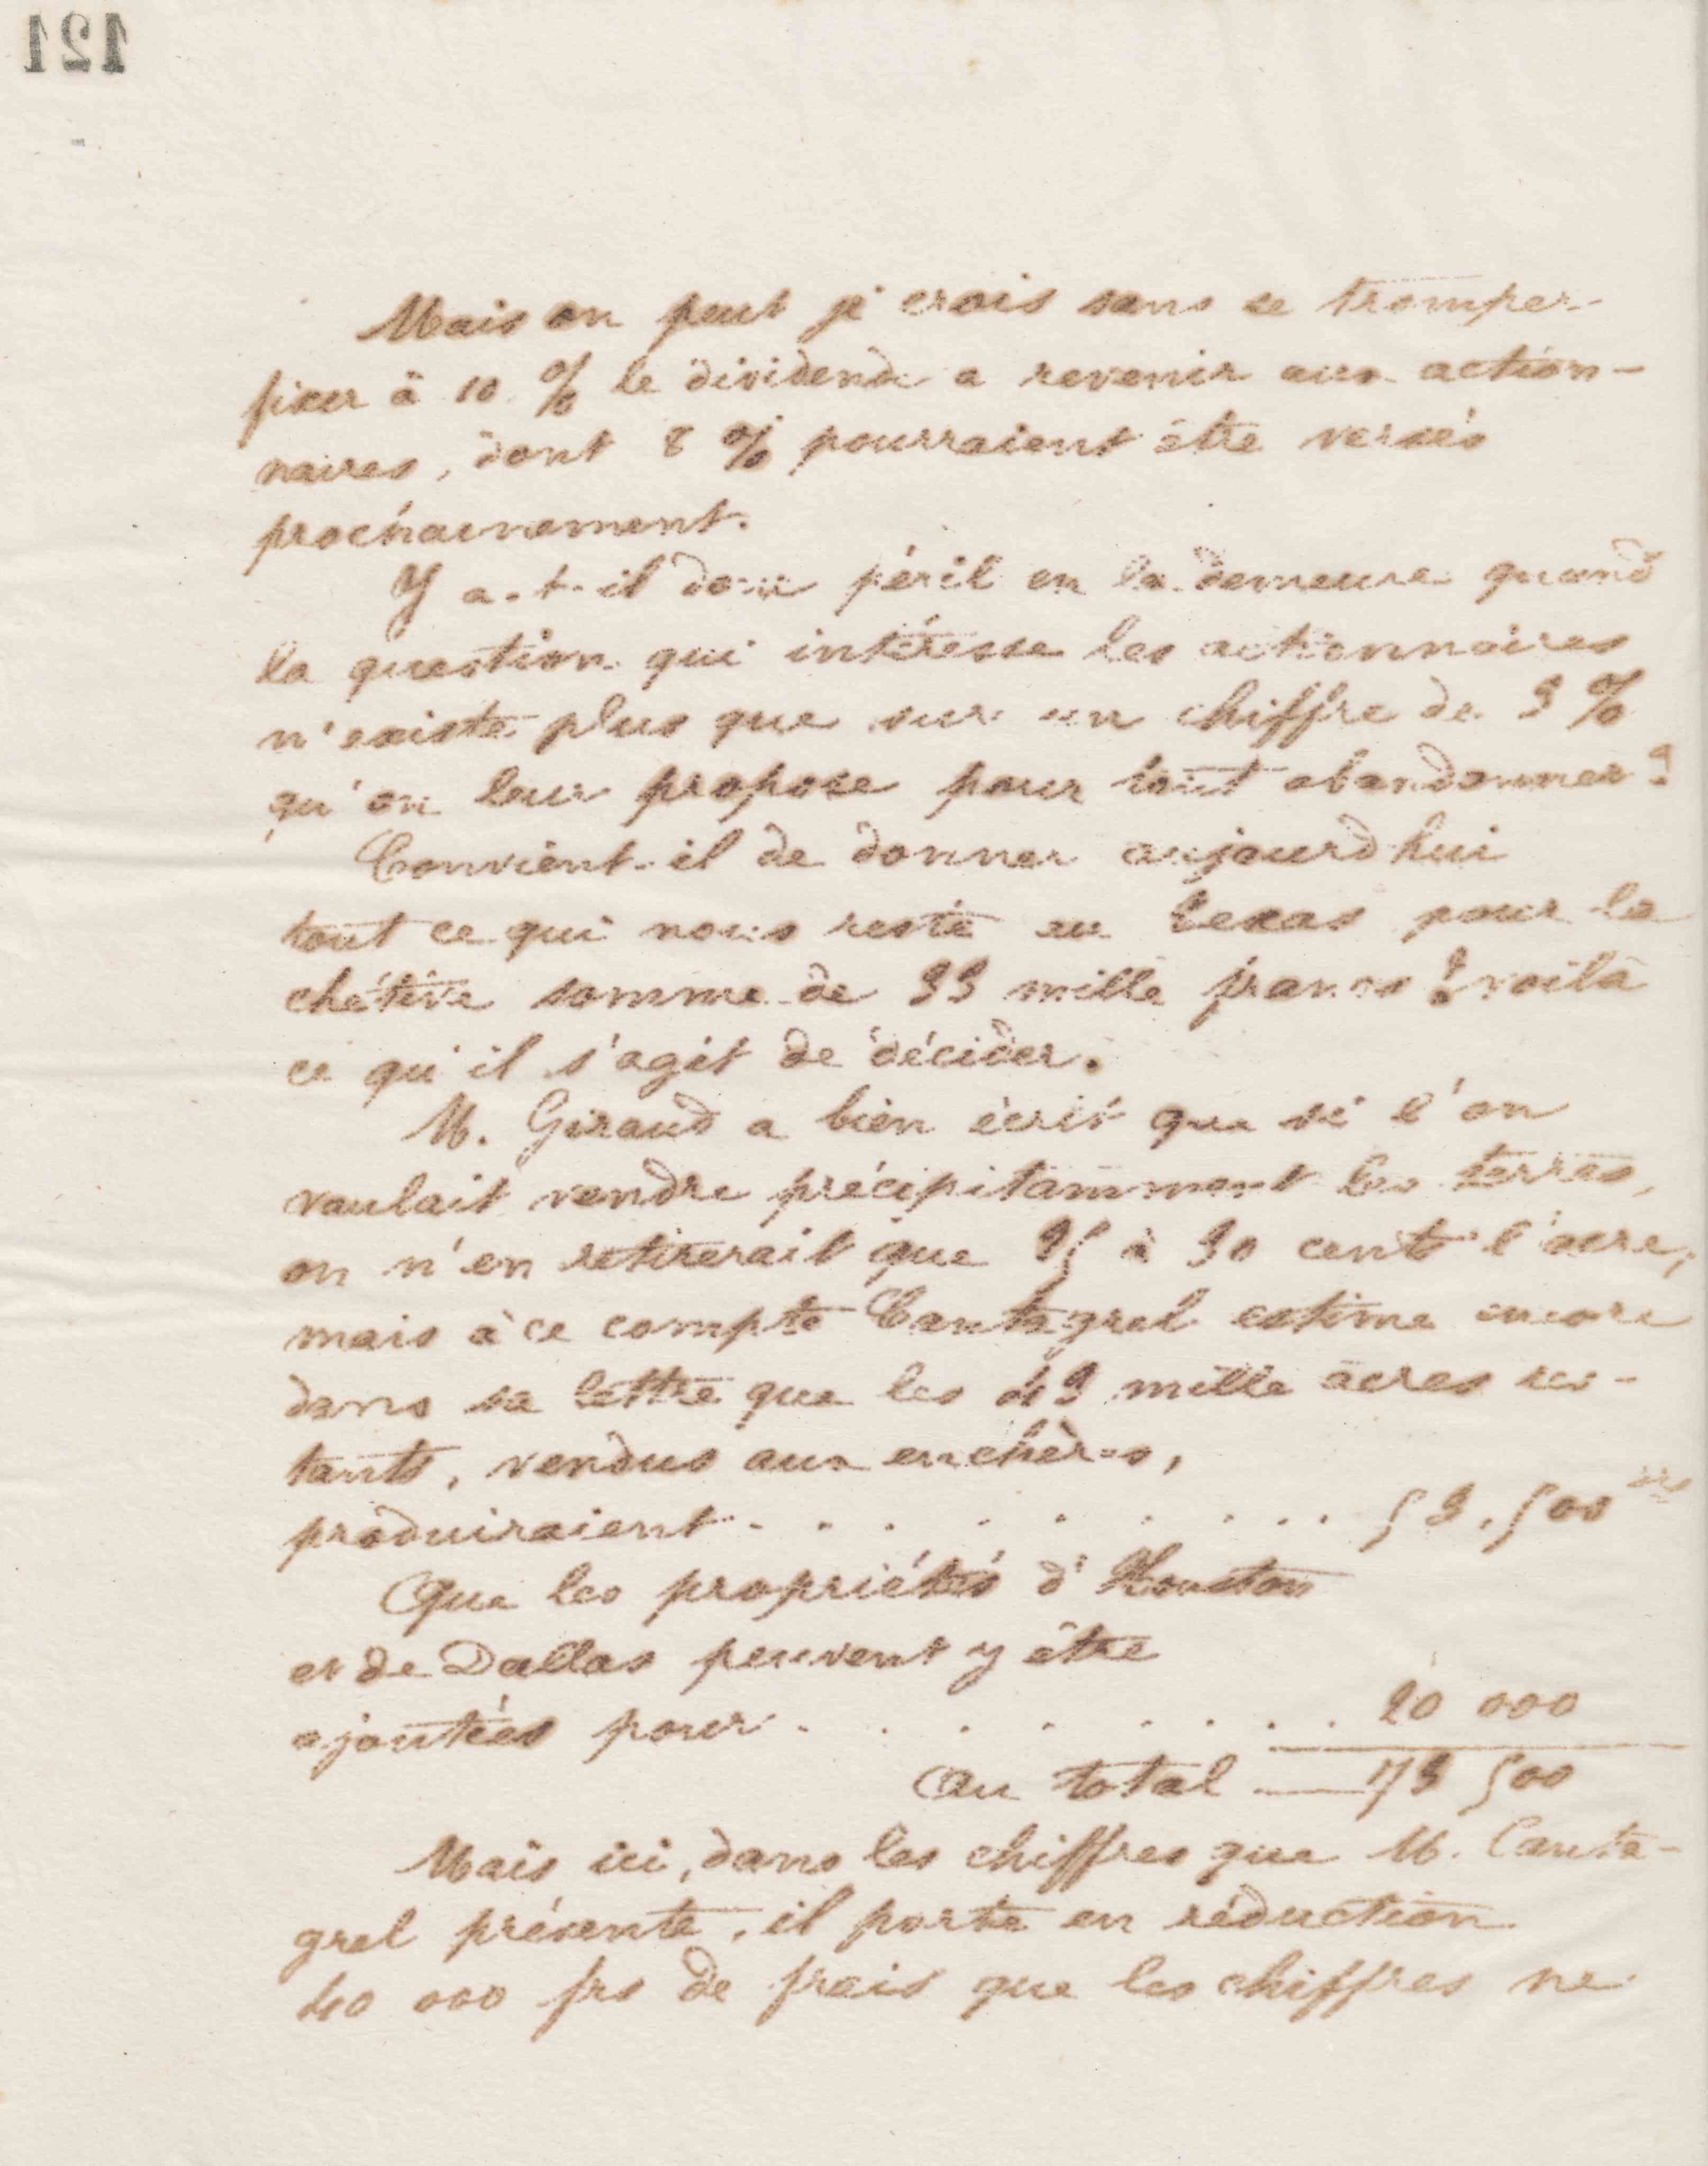 121
Mais on peut je crois sans se tromper
fixer à 10 % le dividende a revenir aux action-
naires, dont 8 % pourraient être versés
prochainement.
Y a-t-il donc péril en la demeure quand
la question qui intéresse les actionnaires
n'existe plus que sur un chiffre de 3 %
qu'on leur propose pour tout abandonner ?
Convient-il de donner aujourd'hui
tout ce qui nous reste au Texas pour la
chétive somme de 33 mille francs ? voilà
ce qu'il s'agit de décider.
M. Giraud a bien écrit que si l'on
voulait vendre précipitamment les terres,
on n'en retirerait que 25 à 30 cents l'acre,
mais à ce compte Cantagrel estime encore
dans sa lettre que les 43 mille acres res-
tants, vendus aux enchères,
produiraient . . . . . . . . . . 53,500
Que les propriétés d'Houston
et de Dallas peuvent y être
ajoutées pour . . . . . . . . . 20 000
Au total — 73 500
Mais ici, dans les chiffres que M. Canta-
grel présente, il porte en réduction
40 000 frs de frais que les chiffres ne